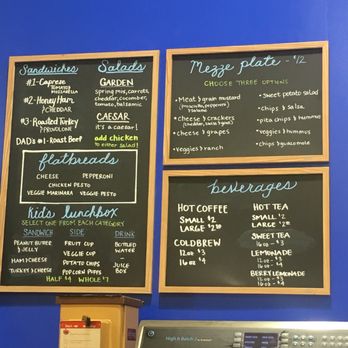 Sandwiches
#1-Caprese
TOMATO
MOZZARELLA
#2-Honey Ham
& CHEDDAR
#3-Roasted Turkey
& PROVOLONE
DAD's #1-Roast Beef
Salads
GARDEN
Spring mix, carrots,
cheddar, cucumber,
tomato, balsamic
CAESAR
it's a caesar!
add chicken
to either salad!
flatbreads
CHEESE PEPPERONI
CHICKEN PESTO
VEGGIE MARINARA VEGGIE PESTO
kids lunchbox
SELECT ONE FROM EACH CATEGORY
SANDWICH
PEANUT BUTTER
& JELLY
HAM & CHEESE
TURKEY & CHEESE
SIDE
FRUIT CUP
VEGGIE CUP
POTATO CHIPS
POPCORN PUFFS
DRINK
BOTTLED
WATER
OR
JUICE
BOX
HALF $4 WHOLE $7
Mezze plate - $12
CHOOSE THREE OPTIONS
• Meat & grain mustard
• Cheese & crackers
• cheese & grapes
• veggies & ranch
• Sweet potato salad
• chips & salsa
• pita chips & hummus
• veggies & hummus
• chips & guacamole
beverages
HOT COFFEE
SMALL $2
LARGE
COLDBREW
12 oz $3
16 oz $4
HOT TEA
SMALL $2
LARGE
SWEET TEA
16 oz - $3
LEMONADE
12 oz - $3
16 oz - $4
BERRY LEMONADE